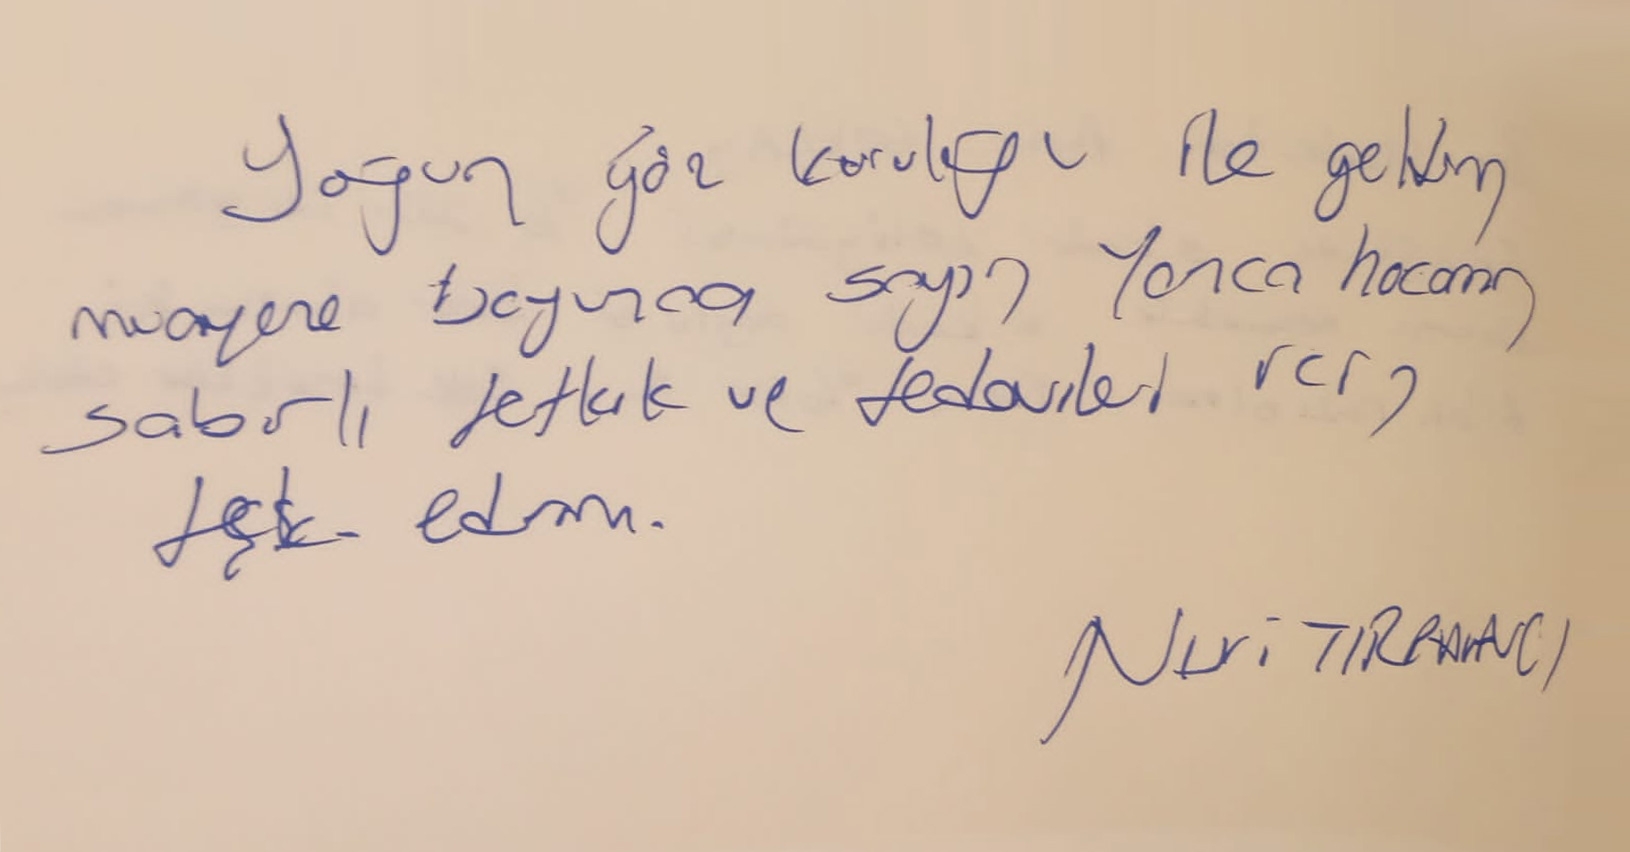 Yoğun göz kuruluğu ile geldim
muayene boyunca sayın Yonca hocamın
sabırlı tetkik ve tedavileri için
teşk. ederim.
Nuri